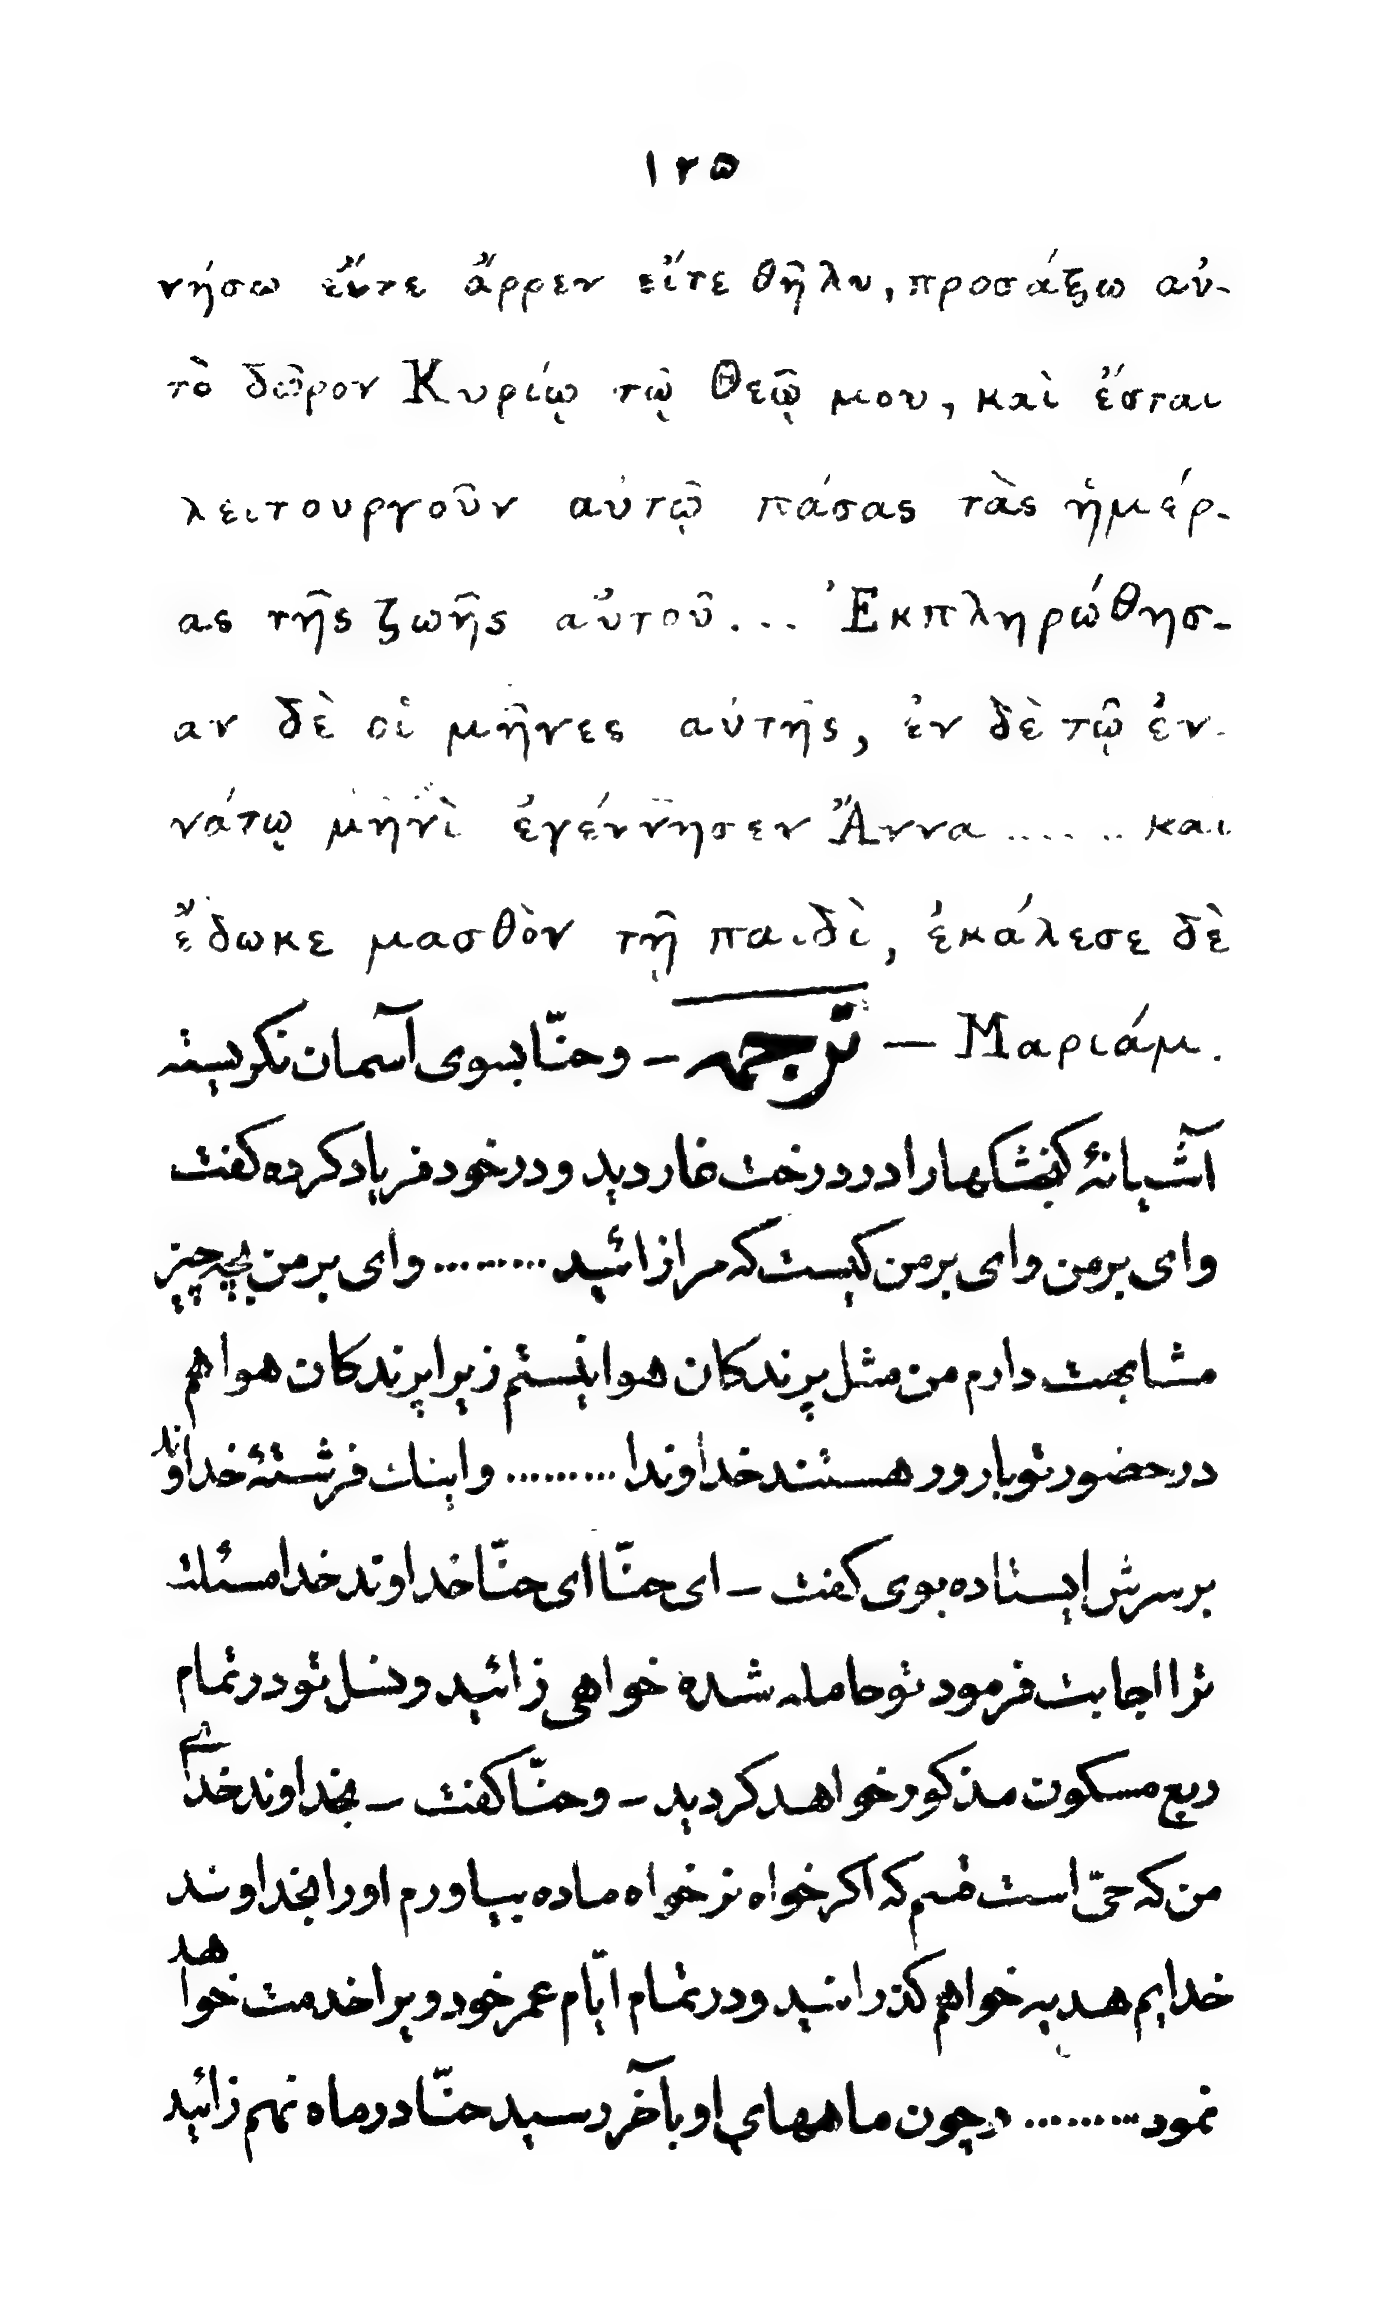 ١٢٥
νήσω εἴτε ἄρρεν εἴτε θῆλυ, προσάξω αὐ-
τὸ δῶρον Κυρίῳ τῷ Θεῷ μου, καὶ ἔσται
λειτουργοῦν αὐτῷ πάσας τὰς ἡμέρ-
ας τῆς ζωῆς αὐτοῦ... Ἐκπληρώθησ-
αν δὲ οἱ μῆνες αὐτῆς, ἐν δὲ τῷ ἐν-
νάτῳ μηνὶ ἐγέννησεν Ἄννα ...... και
ἔδωκε μασθὸν τῇ παιδὶ, ἐκάλεσε δὲ
Μαριάμ. — ترجمه — و حنّا بسوی آسمان نکریسته
آشیانهٔ کنجشکها را در درخت غار دید و در خود فریاد کرده کفت
وای بر من وای بر من کیست که مرا زائید ......... وای بر من بچه چیز
مشابهت دارم من مثل پرندکان هوا نیستم زیرا پرندکان هوا هم
در حضور تو بارور هستند خداوندا ......... و اینك فرشتهٔ خداوند
بر سرش ایستاده بوی کفت – ای حنّا ای حنّا خداوند خدا مسئلت
ترا اجابت فرمود تو حامله شده خواهی زائید و نسل تو در تمام
ربع مسکون مذکور خواهد کردید – و حنّا کفت – بخداوند خدای
من که حیّ است قسم که اکر خواه نر خواه ماده بیاورم او را بخداوند
خدایم هدیه خواهم کذرانید و در تمام ایّام عمر خود ویرا خدمت خواهد
نمود ......... و چون ماههای او بآخر رسید حنّا در ماه نهم زائید